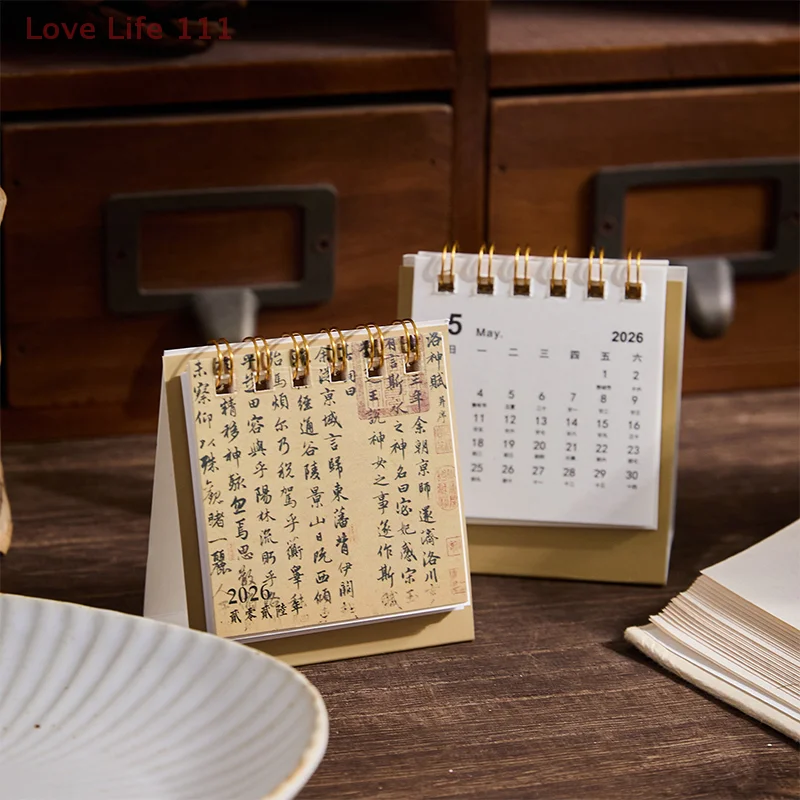 Love Life 111
5 May. 2026
日 一 二 三 四 五 六
1 2
4 5 6 7 8 9
11 12 13 14 15 16
18 19 20 21 22 23
25 26 27 28 29 30
洛神賦
三年余朝京師還濟洛川
有言斯水之神名曰宓妃感宋
王說神女之事遂作斯賦
曰
余從京域言歸東藩背伊闕
經通谷陵景山日既西傾
殆馬煩爾乃稅駕乎蘅皋
田容與乎陽林流眄乎
精移神駭忽焉思散
未察仰以殊觀睹一麗人
2026
貳零貳陸